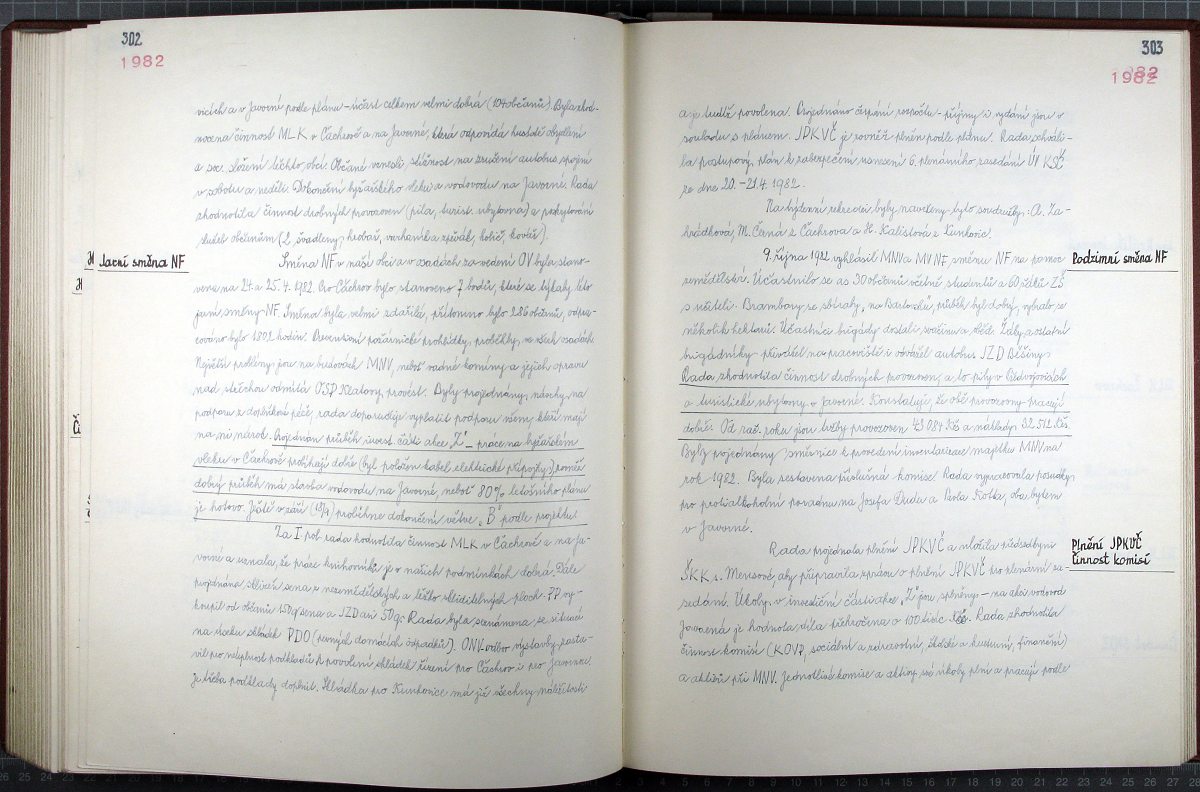 302
1982
vicích a v Javorné podle plánu - účast celkem velmi dobrá (104 občanů). Byla zhod-
nocena činnost MLK v Čachrově a na Javorné, která odpovídá hustotě obydlení
a soc. složení těchto obcí. Občané vznesli stížnost na zrušení autobus. spojení
v sobotu a neděli. Dokončení lyžařského vleku a vodovodu na Javorné. Rada
zhodnotila činnost drobných provozoven (pila, turist. ubytovna) a poskytování
služeb občanům (2 švadleny, hrobař, varhaník a zpěvák, holič, kovář).
Jarní směna NF
Směna NF v naší obci a v osadách za vedení OV byla stano-
vena na 24. a 25. 4. 1982. Pro Čachrov bylo stanoveno 7 bodů, které se týkaly této
jarní směny NF. Směna byla velmi zdařilá, přítomno bylo 286 občanů, odpra-
cováno bylo 1802 hodin. Preventivní požárnické prohlídky proběhly ve všech osadách.
Největší problémy jsou na budovách MNV, neboť vadné komíny a jejich opravu
nad střechou odmítá OSP Klatovy provést. Byly projednány návrhy na
podporu z doplňkové péče, rada doporučuje vyplatit podporu všem, kteří mají
na ni nárok. Projednán průběh invest. části akce "Z" - práce na lyžařském
vleku v Čachrově probíhají dobře (byl položen kabel elektrické přípojky), rovněž
dobrý průběh má stavba vodovodu na Javorné, neboť 80% letošního plánu
je hotovo. Ještě v září proběhne dokončení větve "B" podle projektu.
Za I. pol. rada hodnotila činnost MLK v Čachrově a na Ja-
vorné a uznala, že práce knihovníků je v našich podmínkách dobrá. Dále
projednána sklizeň sena z nezemědělských a těžko sklíditelných ploch. PP vy-
koupil od občanů 150 q sena a JZD asi 50 q. Rada byla seznámena se situací
na úseku skládek PDO (pevných domácích odpadků). ONV odbor výstavby zasta-
vil pro neúplnost podkladů k povolení skládek řízení pro Čachrov i pro Javornou.
Je třeba podklady doplnit. Skládka pro Kunkovice má již všechny náležitosti
303
1982
a je tudíž povolena. Projednáno čerpání rozpočtu - příjmy i vydání jsou v
souladu s plánem. JPKVČ je rovněž plněn podle plánu. Rada schváli-
la postupový plán k zabezpečení usnesení 6. plenárního zasedání ÚV KSČ
ze dne 20. - 21.4. 1982.
Na týdenní rekreaci byly navrženy tyto soudružky: A. Za-
hrádková, M. Černá z Čachrova a H. Kalistová z Kunkovic.
Podzimní směna NF
9. října 1982 vyhlásil MNV a MV NF směnu NF na pomoc
zemědělství. Účastnilo se as 30 občanů včetně studentů a 60 žáků ZŠ
s učiteli. Brambory se sbíraly na Bartoušků, průběh byl dobrý, vybralo se
několik hektarů. Účastníci brigády dostali svačinu a oběd. Žáky a ostatní
brigádníky převážel na pracoviště i odvážel autobus JZD Běšiny.
Rada zhodnotila činnost drobných provozoven, a to pily v Předvojovicích
a turistické ubytovny v Javorné. Konstatuje, že obě provozovny pracují
dobře. Od zač. roku jsou tržby provozoven 43 084 Kčs a náklady 32 512 Kčs.
Byly projednány směrnice k provedení inventarizace majetku MNV na
rok 1982. Byla sestavena příslušná komise. Rada vypracovala posudky
pro protialkoholní poradnu na Josefa Dudu a Pavla Kotta, oba bytem
v Javorné.
Plnění JPKVČ
Činnost komisí
Rada projednala plnění JPKVČ a uložila předsedkyni
ŠKK s. Mencové, aby připravila zprávu o plnění JPKVČ pro plenární za-
sedání. Úkoly v investiční části akce "Z" jsou splněny - na akci vodovod
Javorná je hodnota díla překročena o 100 tisíc Kčs. Rada zhodnotila
činnost komisí (KOVP, sociální a zdravotní, školské a kulturní, finanční)
a aktivů při MNV. Jednotlivé komise a aktivy své úkoly plní a pracují podle